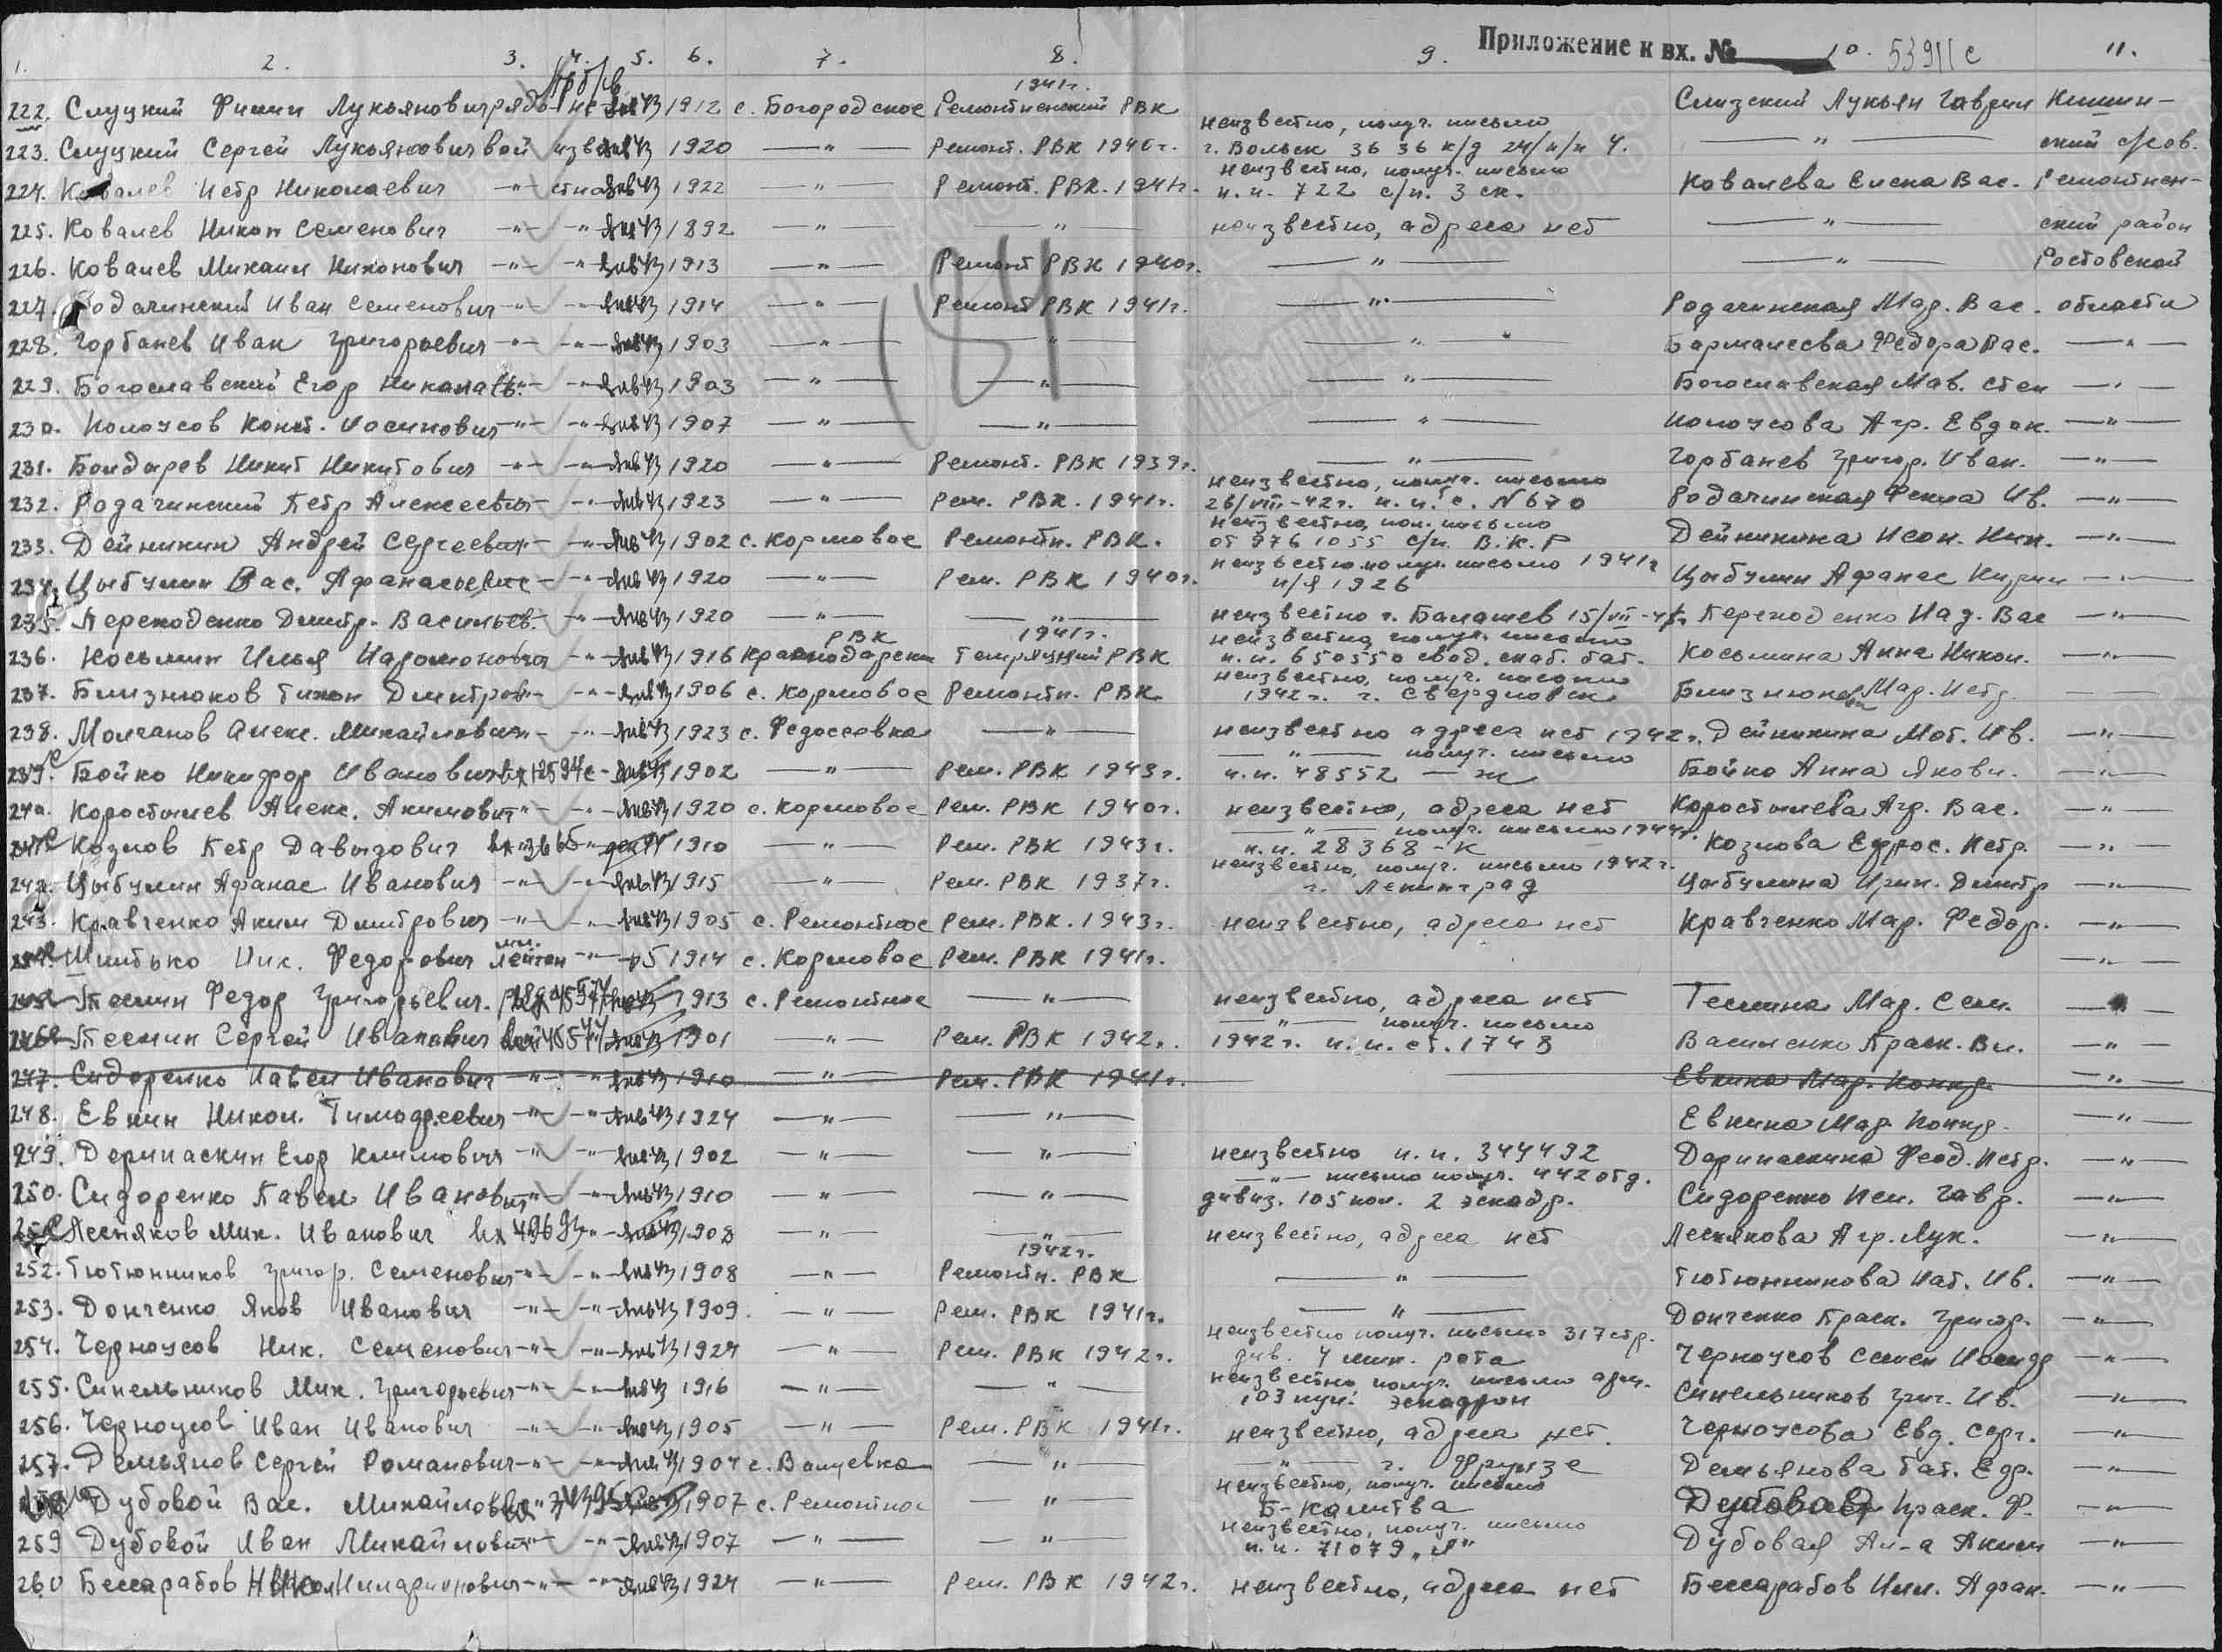 Приложение к вх. № 53911с
1. 2. 3. 4. 5. 6. 7. 8. 9. 10. 11.
222. Слуцкий Лукьянович рядо- 1912 с. Богородское Ремонтненский РВК 1941г. Лукьян Гаврил
223. Слуцкий Сергей Лукьянович вой изве янв 43 1920 —"— Ремонт. РВК 1940г. неизвестно, получ. письмо г. Вольск 36 36 к/д —"— ский с/сов.
224. Ковалев Петр Николаевич —"— стно янв 43 1922 —"— Ремонт. РВК. 1941г. неизвестно, получ. письмо п.п. 722 с/п. 3 ск. Ковалева Елена Вас. Ремонтнен-
225. Ковалев Никон Семенович —"— —"— янв 43 1892 —"— —"— неизвестно, адреса нет —"— ский район
226. Ковалев Михаил Никонович —"— —"— янв 43 1913 —"— Ремонт РВК 1940г. —"— —"— Ростовской
227. Родачинский Иван Семенович —"— —"— янв 43 1914 —"— Ремонт РВК 1941г. —"— Родачинская Мар. Вас. области
184
228. Горбанев Иван Григорьевич —"— —"— янв 43 1903 —"— —"— —"— Федора Вас. —"—
229. Богославский Егор —"— —"— янв 43 1903 —"— —"— —"— Богославская —"—
230. Конст. —"— —"— янв 43 1907 —"— —"— —"— Агр. Евдок. —"—
231. Бондарев Никит Никитович —"— —"— янв 43 1920 —"— Ремонт. РВК 1939г. —"— Горбанев Григор. Иван. —"—
232. Родачинский Петр Алексеевич —"— —"— янв 43 1923 —"— Рем. РВК. 1941г. неизвестно, получ. письмо 26/VIII-42г. п.п.с. N 670 Родачинская Фекла Ив. —"—
233. Дейникин Андрей Сергеевич —"— —"— янв 43 1902 с. Кормовое Ремонтн. РВК. неизвестно, пол. письмо от с/п. Дейникина Ник. —"—
234. Цыбулин Вас. Афанасьевич —"— —"— янв 43 1920 —"— Рем. РВК 1940г. неизвестно получ. письмо 1941г п/я 1926 Цыбулин Афанас —"—
235. Переходенко Дмитр. Васильев. —"— —"— янв 43 1920 —"— —"— неизвестно г. Балашев Переходенко Над. Вас —"—
236. Косьмин Илья —"— —"— янв 43 1916 Краснодарски РВК Темрюцкий РВК 1941г. неизвестно, получ. письмо п.п. 650550 Косьмина Анна Никол. —"—
237. Близнюков Тихон Дмитров. —"— —"— янв 43 1906 с. Кормовое Ремонтн. РВК неизвестно, получ. письмо 1942г. г. Свердловск Близнюкова Мар. Петр. ——
238. Молчанов Алекс. Михайлович —"— —"— янв 43 1923 с. Федосеевка —"— неизвестно адреса нет 1942г. Дейникина Мот. Ив. —"—
239. Бойко Никифор Иванович 1902 —"— Рем. РВК 1943г. —"— получ. письмо п.п. 48552 — ж Бойко Анна Яковл. —"—
240. Коростылев Алекс. Акимович —"— —"— янв 43 1920 с. Кормовое Рем. РВК 1940г. неизвестно, адреса нет Коростылева Агр. Вас. —"—
Козлов Петр Давыдович 1910 —"— Рем. РВК 1943г. —"— получ. письмо 1944г. п.п. 28368-К Козлова Ефрос. Петр. —"—
242. Цыбулин Афанас Иванович —"— —"— янв 43 1915 —"— Рем. РВК 1937г. неизвестно, получ. письмо 1942г. г. Ленинград Цыбулина Ирин. Дмитр —"—
243. Кравченко Аким Дмитрович —"— —"— янв 43 1905 с. Ремонтное Рем. РВК. 1943г. неизвестно, адреса нет Кравченко Мар. Федор. —"—
Ник. Федорович мл. лейтен —"— 1914 с. Кормовое Рем. РВК 1941г. —"—
Теслин Федор Григорьевич. 1913 с. Ремонтное —"— неизвестно, адреса нет Теслина Мар. Сем. —"—
Теслин Сергей Иванович 1901 —"— Рем. РВК 1942г. —"— получ. письмо 1942г. п.п. ст. 1748 Василенко Праск. Вл. —"—
247. Сидоренко Павел Иванович —"— —"— янв 43 1910 —"— Рем. РВК 1941г. Евкина Мар. —"—
248. Евкин Никол. Тимофеевич —"— —"— янв 43 1924 —"— —"— Евкина Мар —"—
249. Дерипаскин Егор Климович —"— —"— янв 43 1902 —"— —"— неизвестно п.п. 344492 Дерипаскина Феод. Петр. —"—
250. Сидоренко Павел Иванович —"— —"— янв 43 1910 —"— —"— —"— письмо получ. 442 отд. дивиз. 105 2 эскадр. Сидоренко Гавр. —"—
Лесняков Мих. Иванович 1908 —"— —"— неизвестно, адреса нет Леснякова Агр. Лук. —"—
252. Тютюнников Григор. Семенович —"— —"— янв 43 1908 —"— Ремонтн. РВК 1942г. —"— Тютюнникова Нат. Ив. —"—
253. Донченко Яков Иванович —"— —"— янв 43 1909 —"— Рем. РВК 1941г. —"— Донченко Праск. Григор. —"—
254. Черноусов Ник. Семенович —"— —"— янв 43 1924 —"— Рем. РВК 1942г. неизвестно получ. письмо 317 стр. див. 4 мин. рота Черноусов Семен —"—
255. Синельников Мих. Григорьевич —"— —"— янв 43 1916 —"— —"— неизвестно получ. письмо 103 эскадрон Синельников Григ. Ив. —"—
256. Черноусов Иван Иванович —"— —"— янв 43 1905 —"— Рем. РВК 1941г. неизвестно, адреса нет. Черноусова Евд. Серг. —"—
257. Демьянов Сергей Романович —"— —"— янв 43 1904 с. Валуевка —"— —"— г. Фрунзе Демьянова Тат. Ефр. —"—
Дубовой Вас. Михайлович 1907 с. Ремонтное —"— неизвестно, получ. письмо Б-Калитва Дубовая Праск. Ф. —"—
259 Дубовой Иван Михайлович —"— —"— янв 43 1907 —"— —"— неизвестно, получ. письмо п.п. 71079 „И" Дубовая Ан-а Аким —"—
260 Бессарабов —"— —"— янв 43 1924 —"— Рем. РВК 1942г. неизвестно, адреса нет Бессарабов Афан. —"—